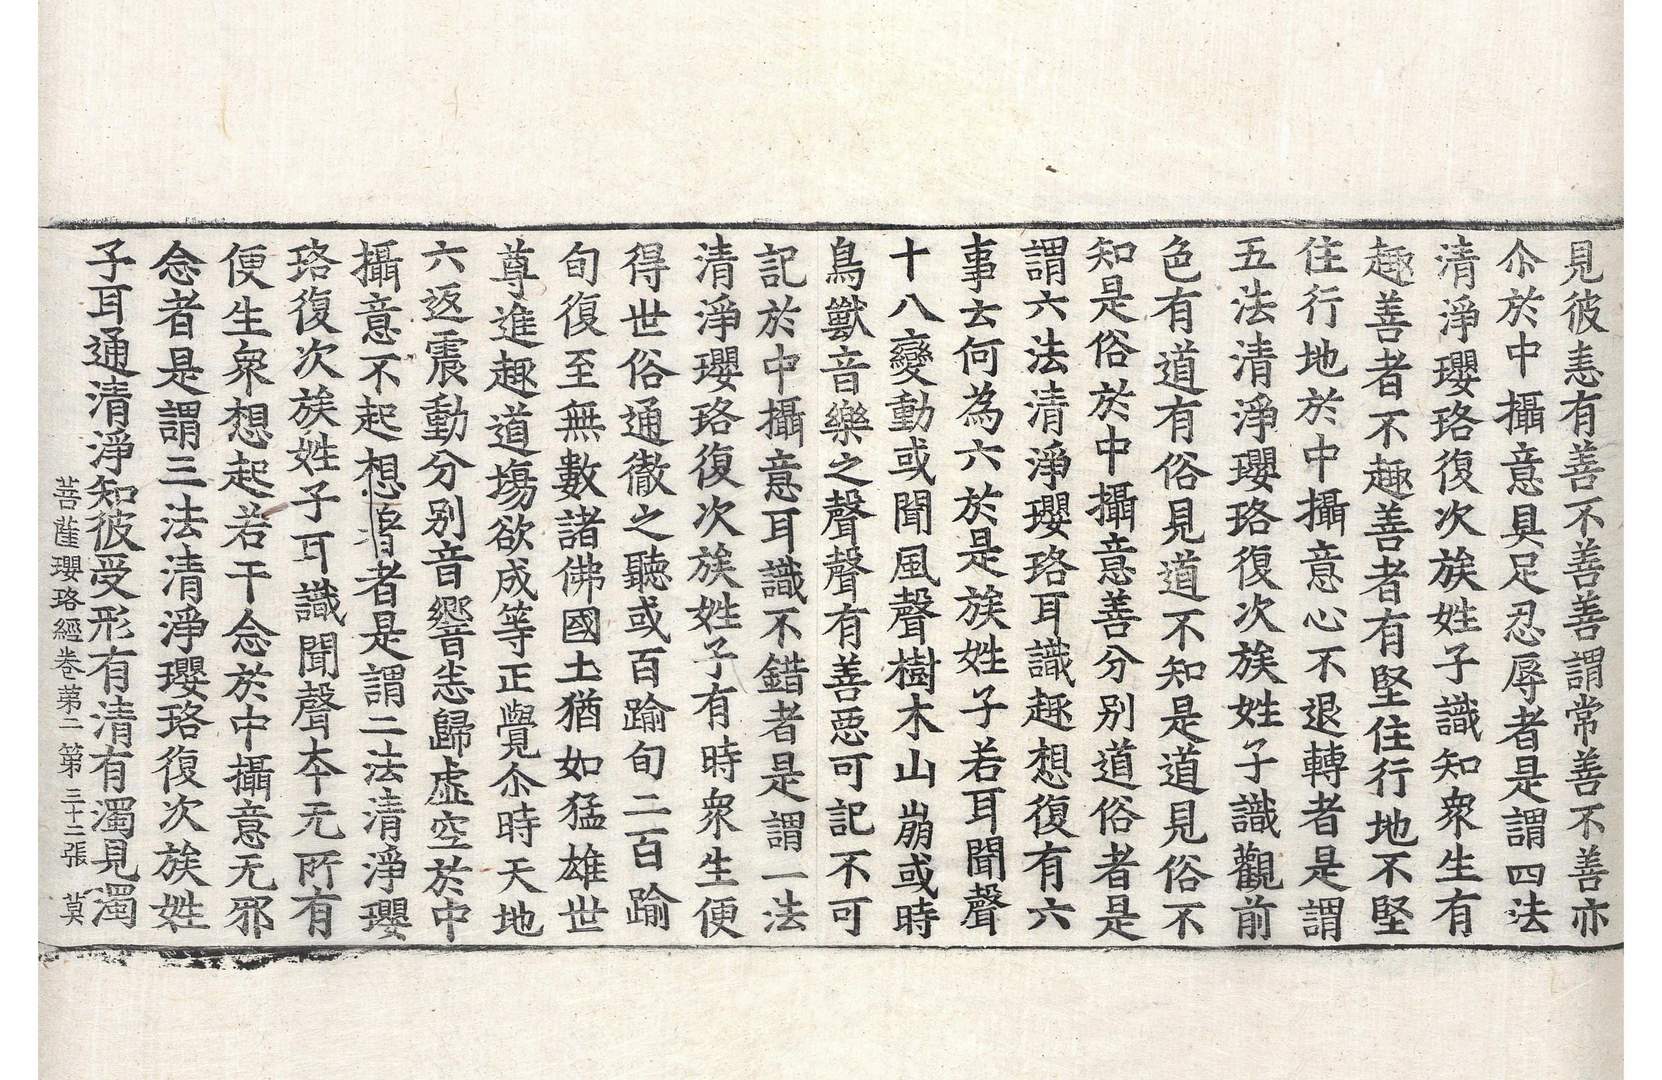 見彼恚有善不善善謂常善不善亦
尒於中攝意具足忍辱者是謂四法
清淨瓔珞復次族姓子識知衆生有
趣善者不趣善者有堅住行地不堅
住行地於中攝意心不退轉者是謂
五法清淨瓔珞復次族姓子識觀前
色有道有俗見道不知是道見俗不
知是俗於中攝意善分別道俗者是
謂六法清淨瓔珞耳識趣想復有六
事云何為六於是族姓子若耳聞聲
十八變動或聞風聲樹木山崩或時
鳥獸音樂之聲聲有善惡可記不可
記於中攝意耳識不錯者是謂一法
清淨瓔珞復次族姓子有時衆生便
得世俗通徹之聽或百踰旬二百踰
旬復至無數諸佛國土猶如猛雄世
尊進趣道場欲成等正覺尒時天地
六返震動分別音響悉歸虛空於中
攝意不起想著者是謂二法清淨瓔
珞復次族姓子耳識聞聲本无所有
便生衆想起若干念於中攝意无邪
念者是謂三法清淨瓔珞復次族姓
子耳通清淨知彼受形有清有濁見濁
菩薩瓔珞經卷第二 第三十二張 莫